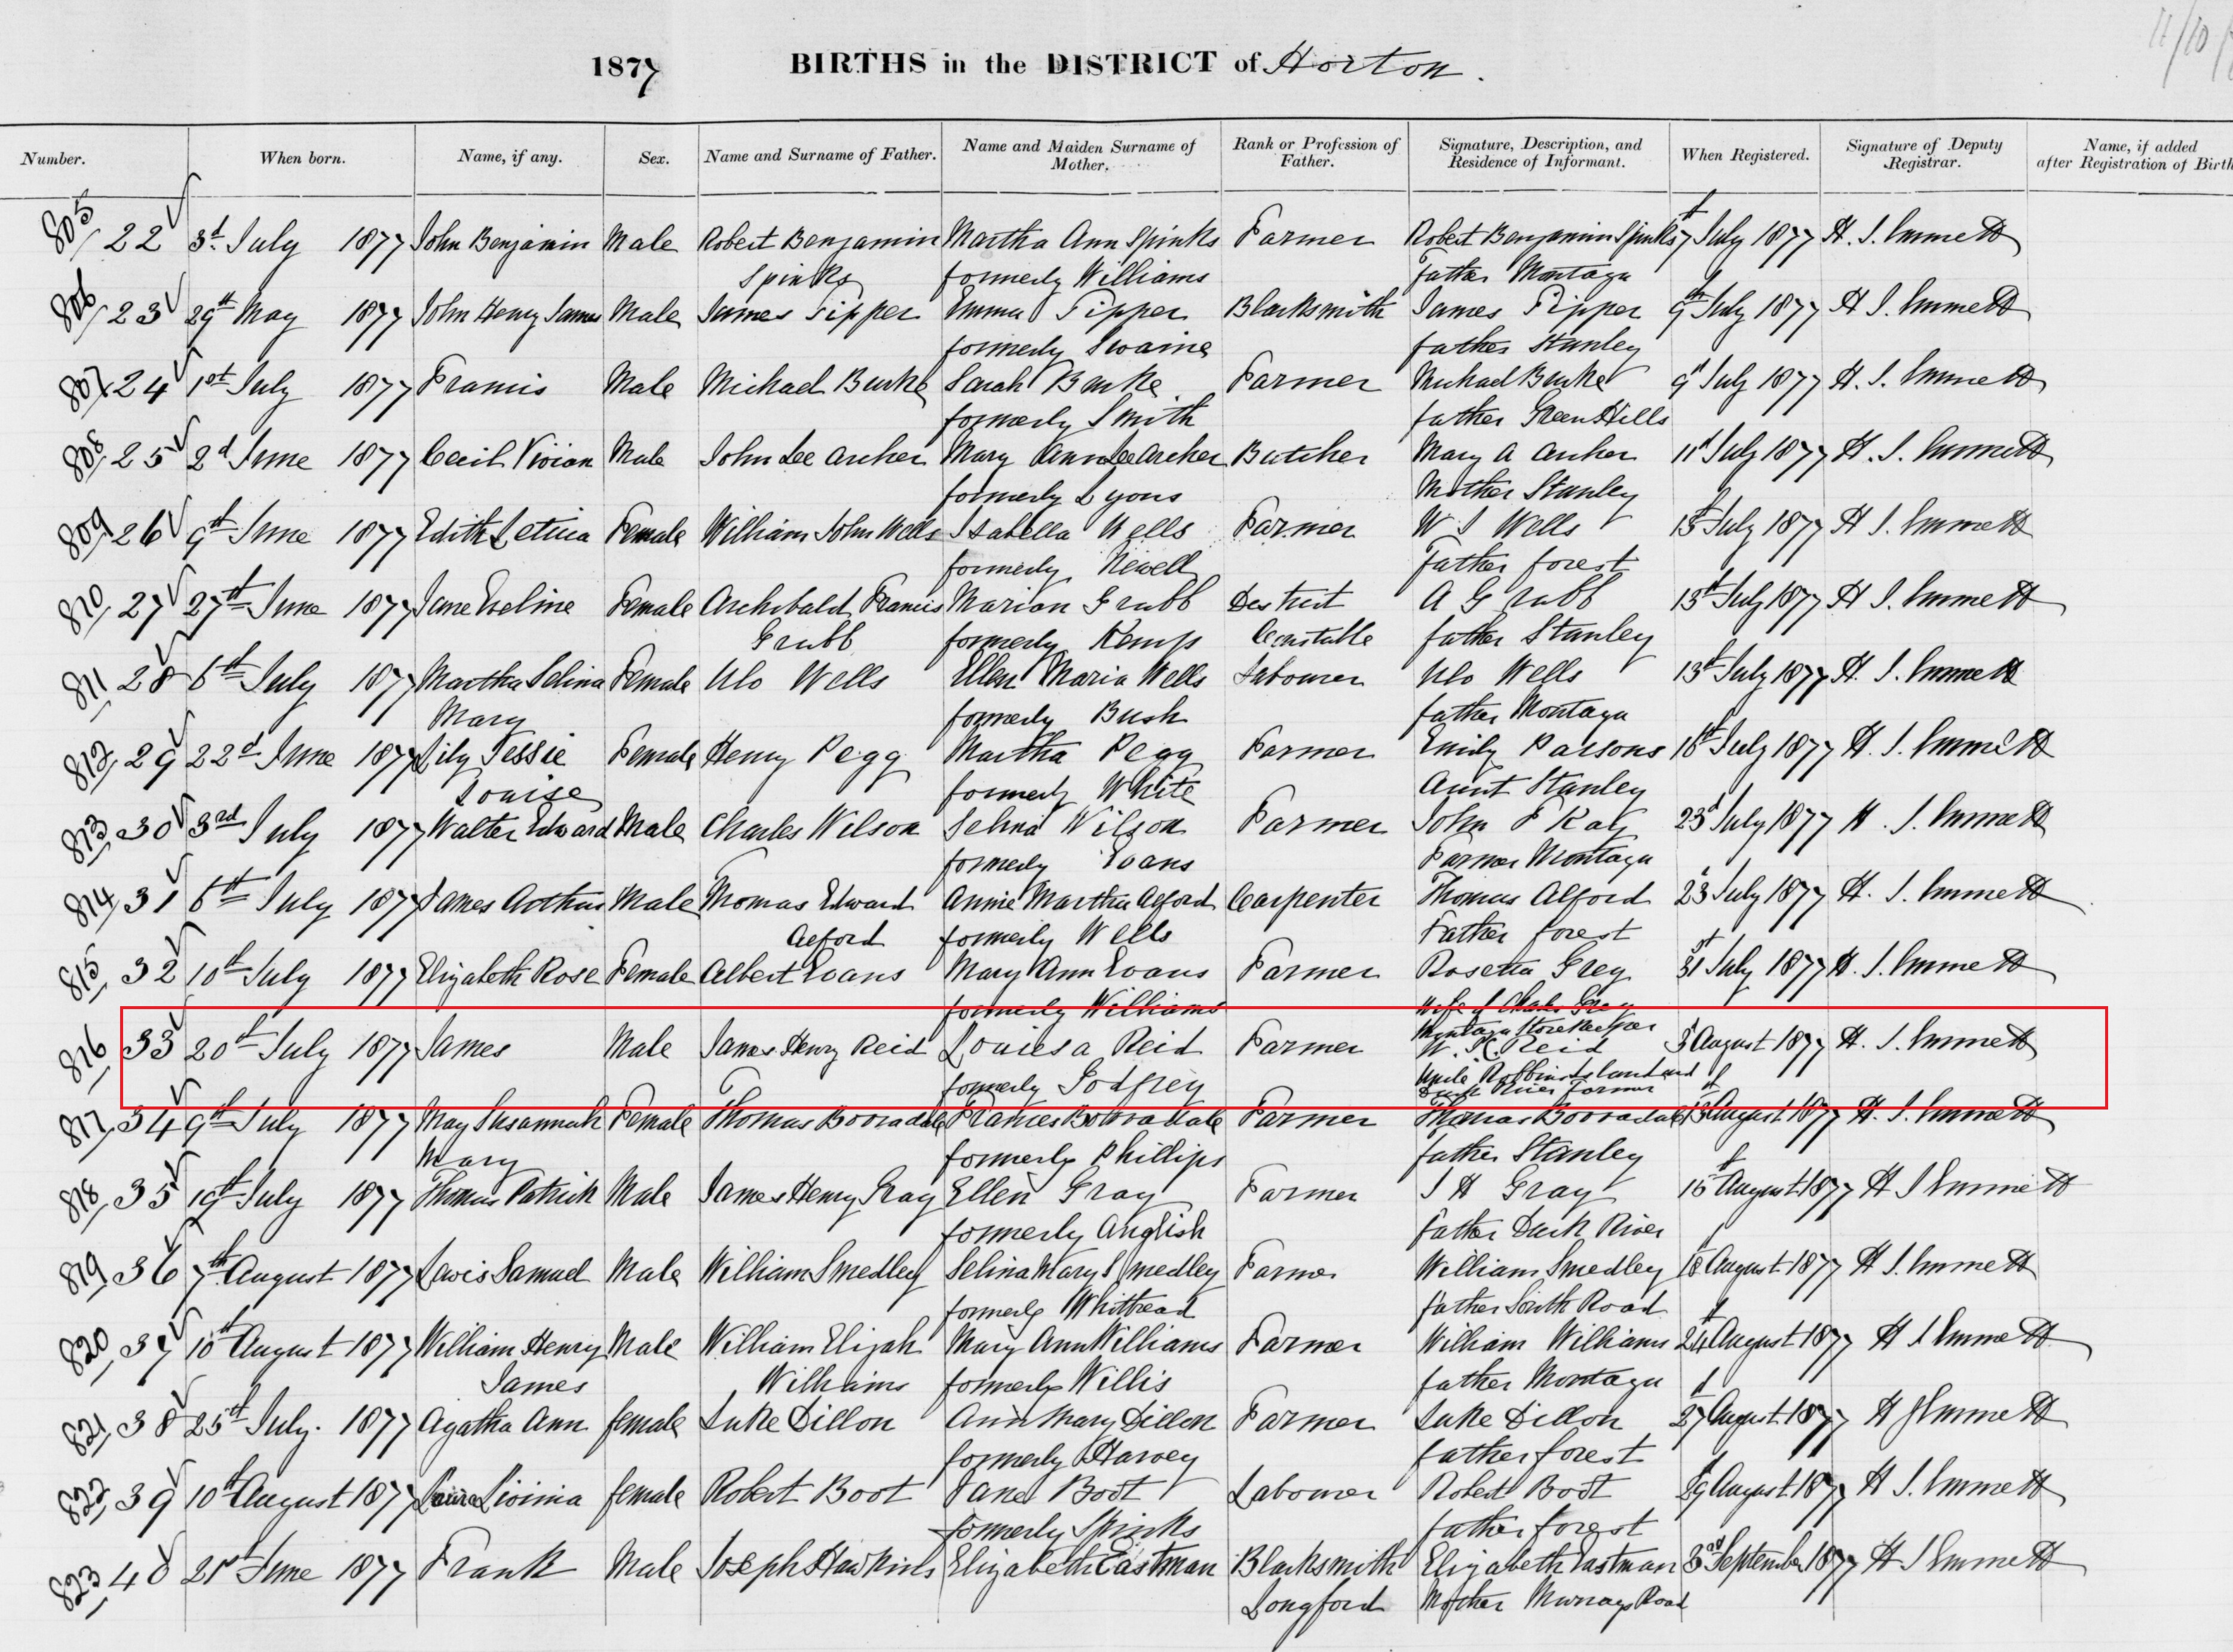 11/10/
1877 BIRTHS in the DISTRICT of Horton.
Number. When born. Name, if any. Sex. Name and Surname of Father. Name and Maiden Surname of Mother. Rank or Profession of Father. Signature, Description, and Residence of Informant. When Registered. Signature of Deputy Registrar. Name, if added after Registration of Birth
805 22 3d July 1877 John Benjamin Male Robert Benjamin Martha Ann Spinks Farmer Robert Benjamin Spinks 7th July 1877 H. S. Emmett
Spinks formerly Williams Father Montagu
806 23 29th May 1877 John Henry James Male James Tipper Emma Tipper Blacksmith James Tipper 9th July 1877 H S. Emmett
formerly Swaine father Stanley
807 24 1st July 1877 Francis Male Michael Burke Sarah Burke Farmer Michael Burke 9th July 1877 H. S. Emmett
formerly Smith father Green Hills
808 25 2d June 1877 Cecil Vivian Male John Lee Archer Mary Ann Lee Archer Butcher Mary A Archer 11th July 1877 H. S. Emmett
formerly Lyons Mother Stanley
809 26 9th June 1877 Edith Letitia Female William John Wells Isabella Wells Farmer W J Wells 13th July 1877 H S. Emmett
formerly Newell Father forest
810 27 27th June 1877 Jane Eveline Female Archibald Francis Marion Grubb District A G rubb 13th July 1877 H S. Emmett
Grubb formerly Kemp Constable father Stanley
811 28 6th July 1877 Martha Selina Female Wells Ellen Maria Wells Labourer Wells 13th July 1877 H. S. Emmett
Mary formerly Bush father Montagu
812 29 22d June 1877 Lily Jessie Female Henry Pegg Martha Pegg Farmer Emily Parsons 16th July 1877 H. S. Emmett
Louise formerly White Aunt Stanley
813 30 3rd July 1877 Walter Edward Male Charles Wilson Selina Wilson Farmer John F Kay 23d July 1877 H. S. Emmett
formerly Evans Farmer Montagu
814 31 6th July 1877 James Arthur Male Thomas Edward Annie Martha Alford Carpenter Thomas Alford 23 July 1877 H. S. Emmett
Alford formerly Wells Father forest
815 32 10th July 1877 Elizabeth Rose Female Albert Evans Mary Ann Evans Farmer Rosetta Grey 31st July 1877 H. S. Emmett
formerly Williams Wife of Charles Grey
Montagu Storekeeper
816 33 20th July 1877 James Male James Henry Reid Louiesa Reid Farmer W. H. Reid 3d August 1877 H. S. Emmett
formerly Godfrey Uncle Robbins Island and
Duck River Farmer
817 34 9th July 1877 May Susannah Female Thomas Borradale Frances Borradale Farmer Thomas Borradale 13th August 1877 H. S. Emmett
Mary formerly Phillips father Stanley
818 35 19th July 1877 Thomas Patrick Male James Henry Gray Ellen Gray Farmer J H Gray 15th August 1877 H S Emmett
formerly Anglish father Duck River
819 36 7th August 1877 Lewis Samuel Male William Smedley Selina Mary Smedley Farmer William Smedley 18 August 1877 H S. Emmett
formerly Whitbread father South Road
820 37 10th August 1877 William Henry Male William Elijah Mary Ann Williams Farmer William Williams 24th August 1877 H S Emmett
James Williams formerly Willis father Montagu
821 38 25th July. 1877 Agatha Ann female Luke Dillon Ann Mary Dillon Farmer Luke Dillon 27th August 1877 H S Emmett
formerly Harvey father forest
822 39 10th August 1877 Livinia female Robert Boot Jane Boot Labourer Robert Boot 29 August 1877 H S. Emmett
formerly Spinks father forest
823 40 21st June 1877 Frank Male Joseph Hawkins Elizabeth Eastman Blacksmith Elizabeth Eastman 3rd September 1877 H S Emmett
Longford Mother Murrays Road